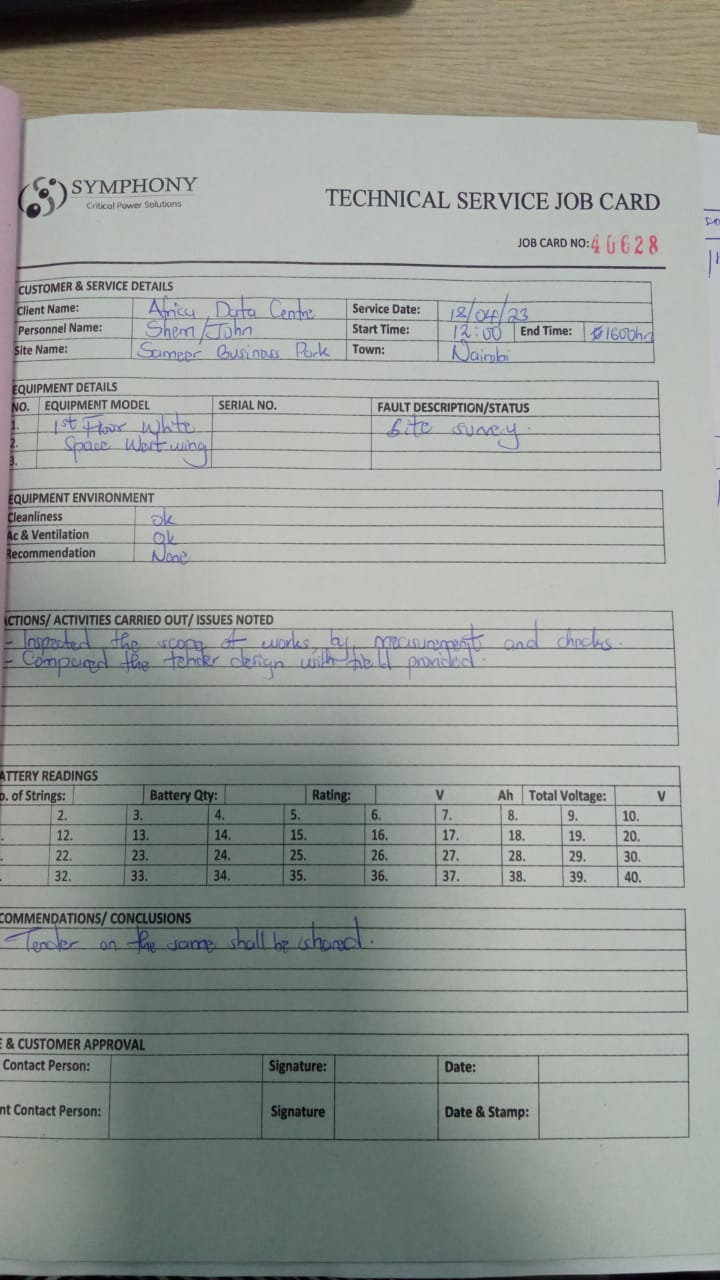 SYMPHONY
Critical Power Solutions
TECHNICAL SERVICE JOB CARD
JOB CARD NO: 40628
CUSTOMER & SERVICE DETAILS
Client Name: Africa Data Centre Service Date: 18/04/23
Personnel Name: Shem/John Start Time: 12:00 End Time: 1600hr
Site Name: Sameer Business Park Town: Nairobi
EQUIPMENT DETAILS
NO. EQUIPMENT MODEL SERIAL NO. FAULT DESCRIPTION/STATUS
1. 1st Floor White Site survey.
2. Space West wing
3.
EQUIPMENT ENVIRONMENT
Cleanliness ok
Ac & Ventilation ok
Recommendation None
ACTIONS/ ACTIVITIES CARRIED OUT/ ISSUES NOTED
- Inspected the scope of works, by measurements and checks.
- Compared the tender design with provided.
ATTERY READINGS
o. of Strings: Battery Qty: Rating: V Ah Total Voltage: V
2. 3. 4. 5. 6. 7. 8. 9. 10.
12. 13. 14. 15. 16. 17. 18. 19. 20.
22. 23. 24. 25. 26. 27. 28. 29. 30.
32. 33. 34. 35. 36. 37. 38. 39. 40.
COMMENDATIONS/ CONCLUSIONS
- Tender on the same shall be shared.
E & CUSTOMER APPROVAL
Contact Person: Signature: Date:
nt Contact Person: Signature Date & Stamp: